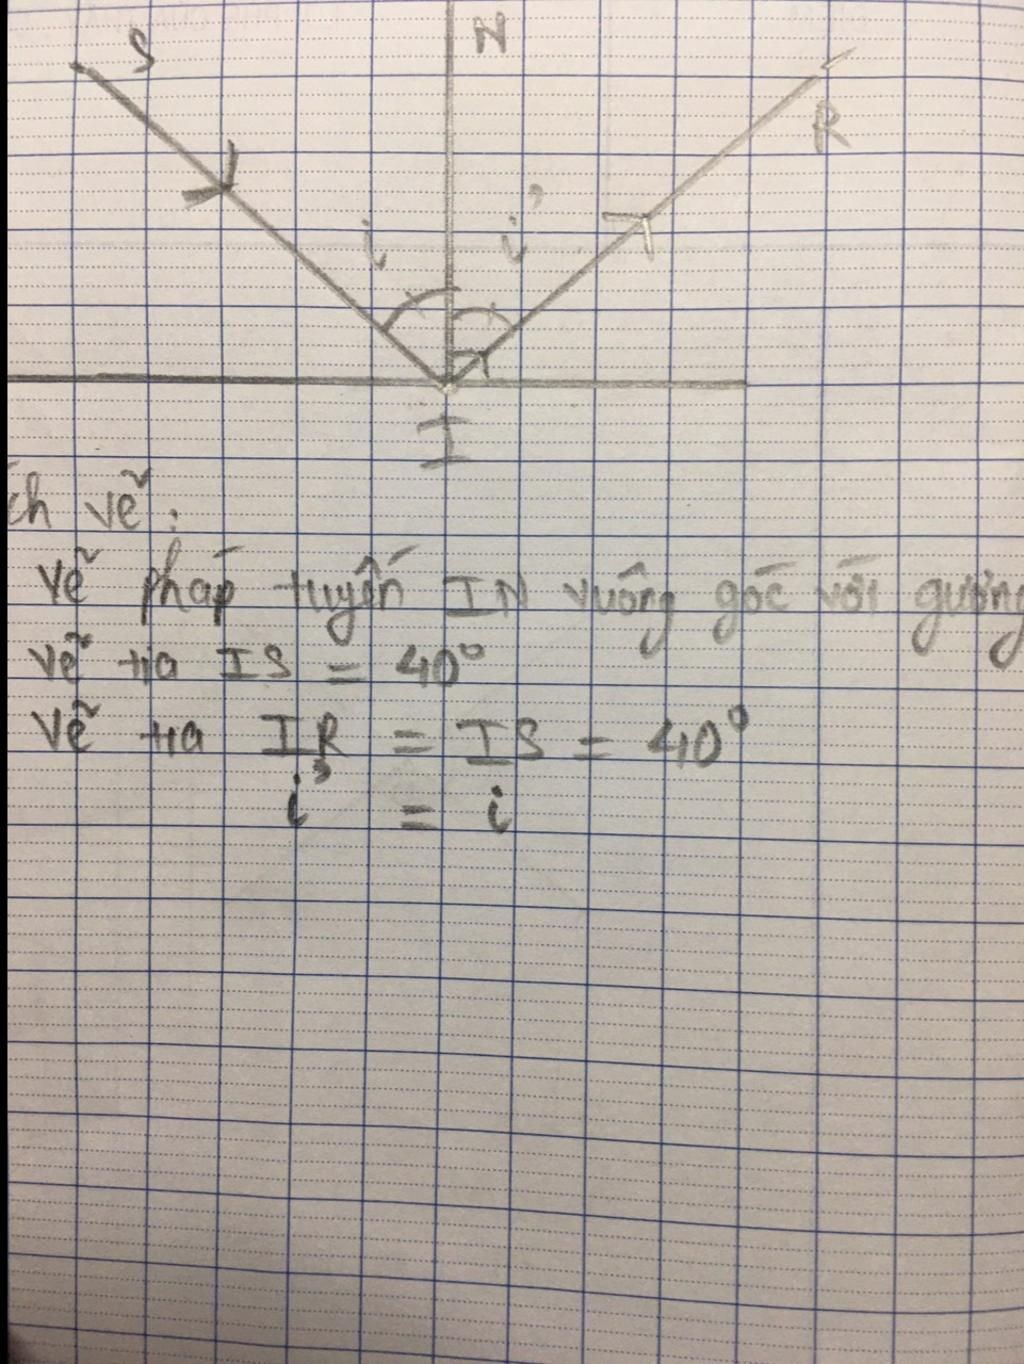 S
N
R
i
i'
I
ch vẽ:
vẽ pháp tuyến IN vuông góc với gương
vẽ tia IS = 40°
vẽ tia IR = IS = 40°
i' = i